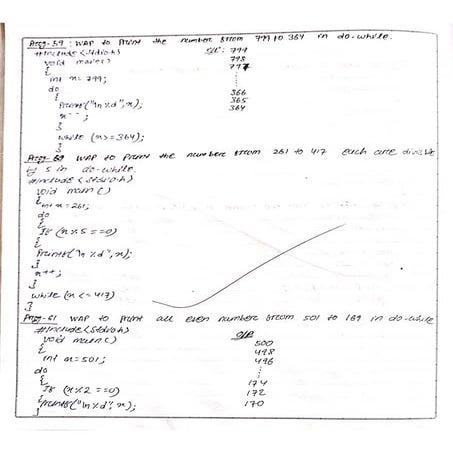 Prog-59 : WAP to Print the number from 799 to 364 in do-while.
#include <stdio.h> O/P: 799
void main() 798
{ 797
int n= 799; ⋮
do
{ 366
Printf("\n%d",n); 365
n--; 364
}
while (n>=364);
}
Prog- 60 WAP to Print the number from 261 to 417 each are divisible
by 5 in do-while.
#include <stdio.h>
void main ()
{ int n=261;
do
{
If (n%5==0)
{
Printf("\n%d",n);
}
n++;
}
while (n<=417)
}
Prog- 61 WAP to Print all even number from 501 to 169 in do-while
#include <stdio.h> O/P
void main() 500
{ 498
int n=501; 496
do ⋮
{ 174
If (n%2 ==0) 172
{ printf("\n%d",n); 170
}